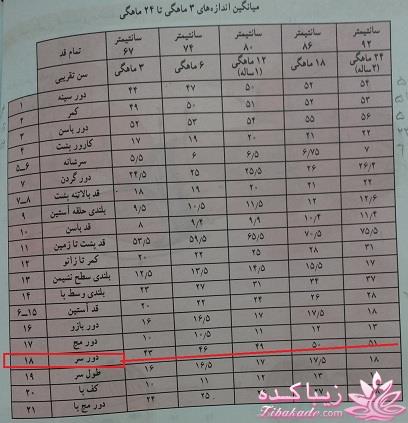 میانگین اندازه‌های ۳ ماهگی تا ۲۴ ماهگی
تمام قد سانتیمتر ۶۷ سانتیمتر ۷۴ سانتیمتر ۸۰ سانتیمتر ۸۶ سانتیمتر ۹۲
سن تقریبی ۳ ماهگی ۶ ماهگی ۱۲ ماهگی (۱ساله) ۱۸ ماهگی ۲۴ ماهگی (۲ساله)
۱ دور سینه ۴۴ ۴۷ ۵۰ ۵۲ ۵۴
۲ کمر ۴۹ ۵۰ ۵۱
۳ دور باسن ۵۲ ۵۳ ۵۴ ۵۵ ۵۶
۴ کارور پشت ۱۷ ۱۹ ۲۰ ۲۱ ۲۲
۵-۶ سرشانه ۵/۵ ۶ ۶/۵ ۶/۷۵ ۷
۷ دور گردن ۲۴/۵ ۲۵ ۲۵/۵ ۲۶ ۲۶/۴
۷-۸ قد بالاتنه پشت ۱۸ ۱۹ ۲۰ ۲۱ ۲۲
۹ بلندی حلقه آستین ۹/۵ ۱۰/۵ ۱۱/۵ ۱۲/۶
۱۰ قد باسن ۸ ۹/۲ ۹/۹ ۱۱/۴
۱۱ قد پشت تا زمین ۵۳/۵ ۵۹/۵ ۶۵/۵ ۷۰/۵ ۷۵/۵
۱۲ کمر تا زانو ۲۰ ۲۲ ۲۵ ۲۸ ۳۱
۱۳ بلندی سطح نشیمن ۱۲/۵ ۱۳/۵ ۱۴/۵ ۱۵/۵ ۱۷
۱۴ بلندی وسط پا ۳۴ ۳۷
۱۵-۶ قد آستین ۲۰ ۲۲ ۲۴ ۲۶ ۲۸
۱۶ دور بازو ۱۶ ۱۶/۵ ۱۷ ۱۷/۵ ۱۸
۱۷ دور مچ ۱۰ ۱۰/۵ ۱۱ ۱۲ ۱۳
۱۸ دور سر ۴۳ ۴۶ ۴۹ ۵۰ ۵۱
۱۹ طول سر ۱۶ ۱۶/۵ ۱۷ ۱۷/۵ ۱۸
۲۰ کف پا ۱۰ ۱۱ ۱۲
۲۱ دور مچ پا ۲۴ ۲۵
زیباکده
Tibakade.com